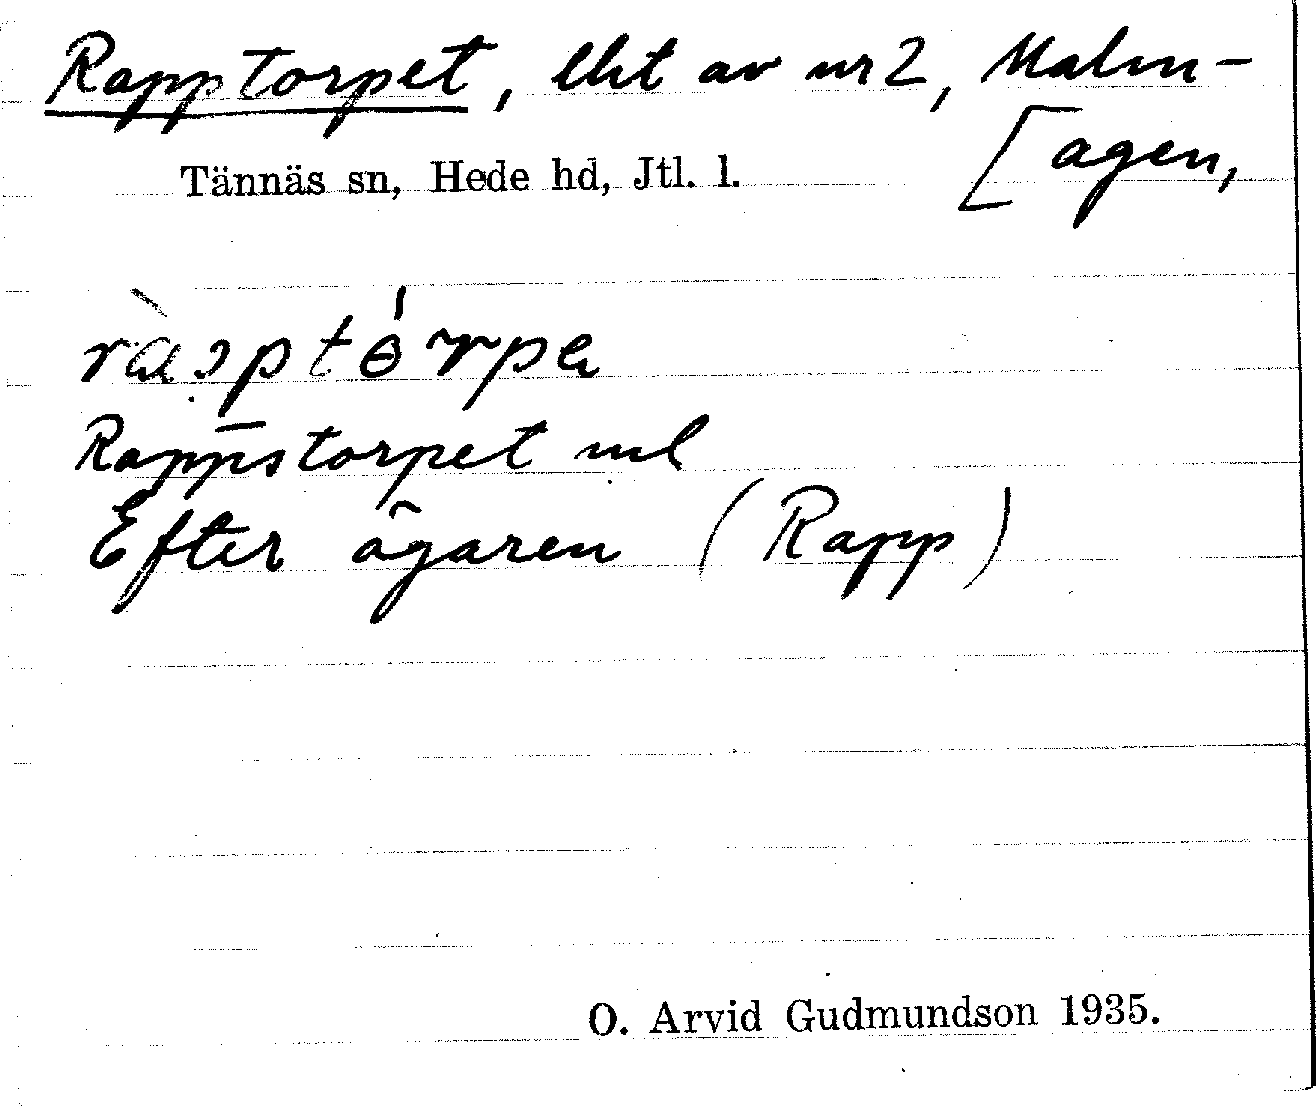 Rapptorpet, lht av nr 2, Malm-
[agen,
Tännäs sn, Hede hd, Jtl. l.
Rapp̅storpet ml
Efter ägaren (Rapp)
O. Arvid Gudmundson 1935.